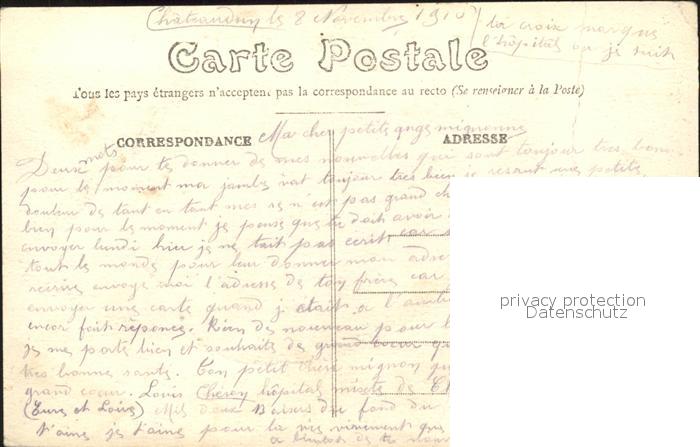 Châteaudun le 8 Novembre 191
la croix marque
l'hôpital ou je suis
Carte Postale
Tous les pays étrangers n'acceptent pas la correspondance au recto (Se renseigner à la Poste)
CORRESPONDANCE
ADRESSE
Ma cher petite ange mignonne
Deux mots pour te donner de mes nouvelles qui sont toujour tres bonne
pour le moment ma jambe vat toujour tres bien je resent une petite
douleur de tant en tant mes se n est pas grand
bien pour le moment je pense que tu doit avoir
envoyer lundi hier je ne tait pas ecrit car
tout le monde pour leur donner mon
récrire envoye moi l'adresse de ton frère car
envoyer une carte quand j etait a l'
encor fait réponce. Rien de nouveau pour
je me porte bien et souhaite de grand coeur
tres bonne sante. Ton petit chéri mignon
grand coeur. Louis hôpital mixte de
(Eure et Loire) Mil doux Baisers du fond du
t'aime je t'aime pour la vie
a bientot de te
privacy protection
Datenschutz